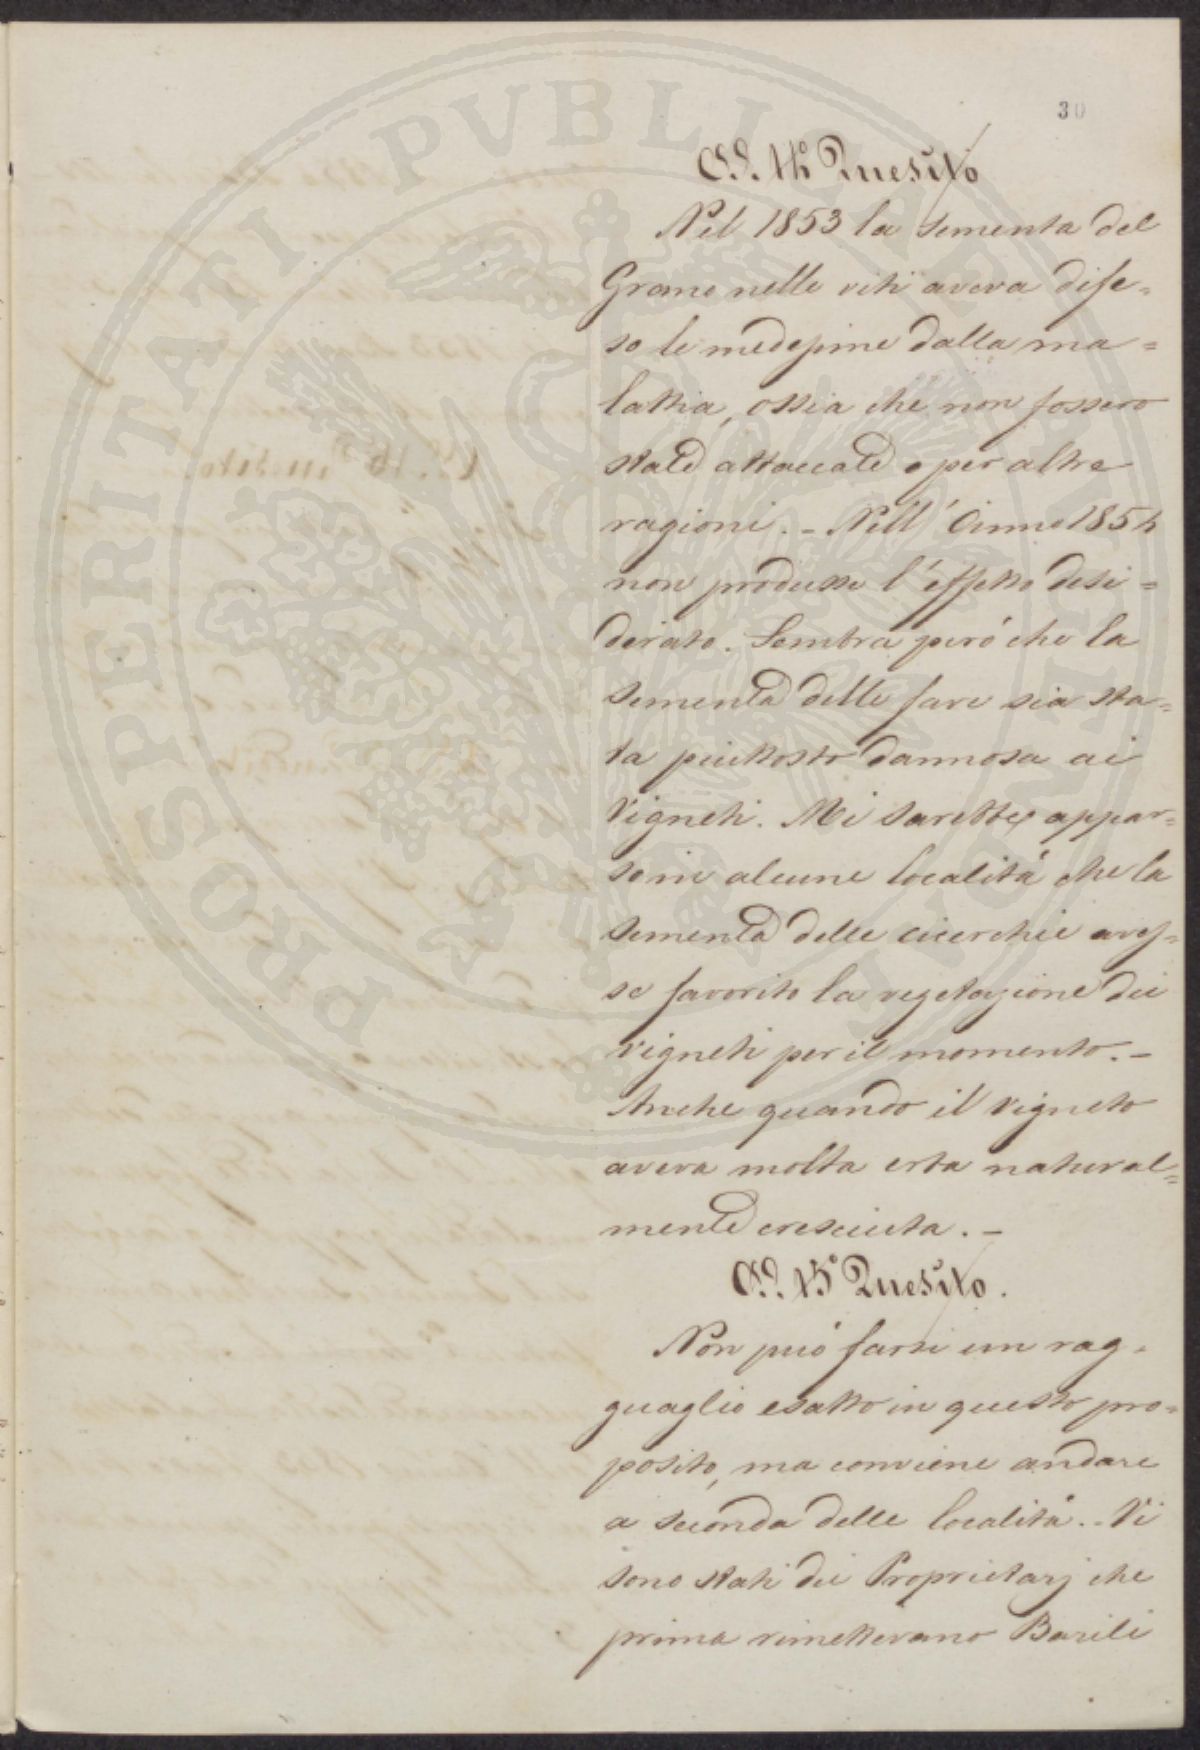 30
Ad. 14° Quesito
Nel 1853 la sementa del
Grano nelle viti aveva dife=
so le medesime dalla ma=
lattia, ossia che non fossero
state attaccate o per altre
ragioni. – Nell' Anno 1854
non produsse l'effetto desi=
derato. Sembra peró che la
sementa delle fave sia sta=
ta piuttosto dannosa ai
Vigneti. Mi sarebbe appar=
so in alcune localitá che la
sementa delle cicerchie aves=
se favorito la vegetazione dei
vigneti per il momento. –
Anche quando il vigneto
aveva molta erba natural=
mente cresciuta. –
Ad. 15° Quesito.
Non puó farsi un rag=
guaglio esatto in questo pro=
posito, ma conviene andare
a seconda delle localitá. – Vi
sono stati dei Proprietarj che
prima rimettevano Barili
PROSPERITATI PVBLICAE AVGENDAE